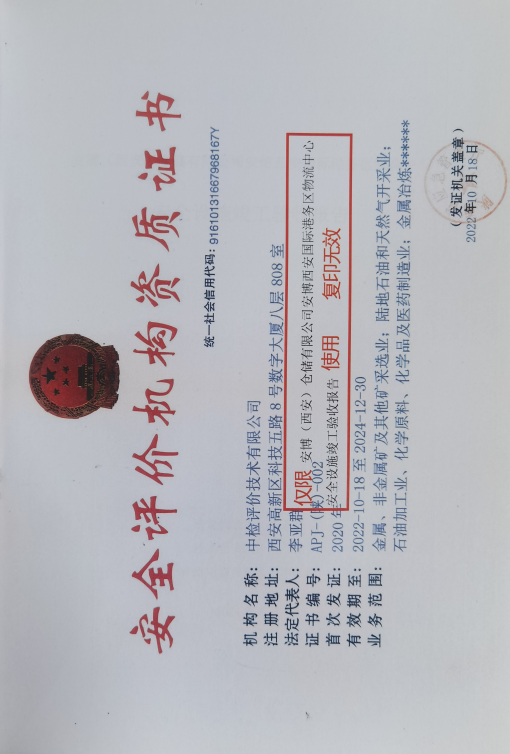 安全评价机构资质证书
统一社会信用代码：91610131667968167Y
机构名称：中检评价技术有限公司
注册地址：西安高新区科技五路8号数字大厦八层808室
法定代表人：李亚群
证书编号：APJ-(陕)-002
首次发证：2020年
有效期至：2022-10-18至2024-12-30
业务范围：金属、非金属矿及其他矿采选业；陆地石油和天然气开采业；
石油加工业、化学原料、化学品及医药制造业；金属冶炼******
仅限安博（西安）仓储有限公司安博西安国际港务区物流中心
安全设施竣工验收报告使用 复印无效
（发证机关盖章）
2022年10月18日